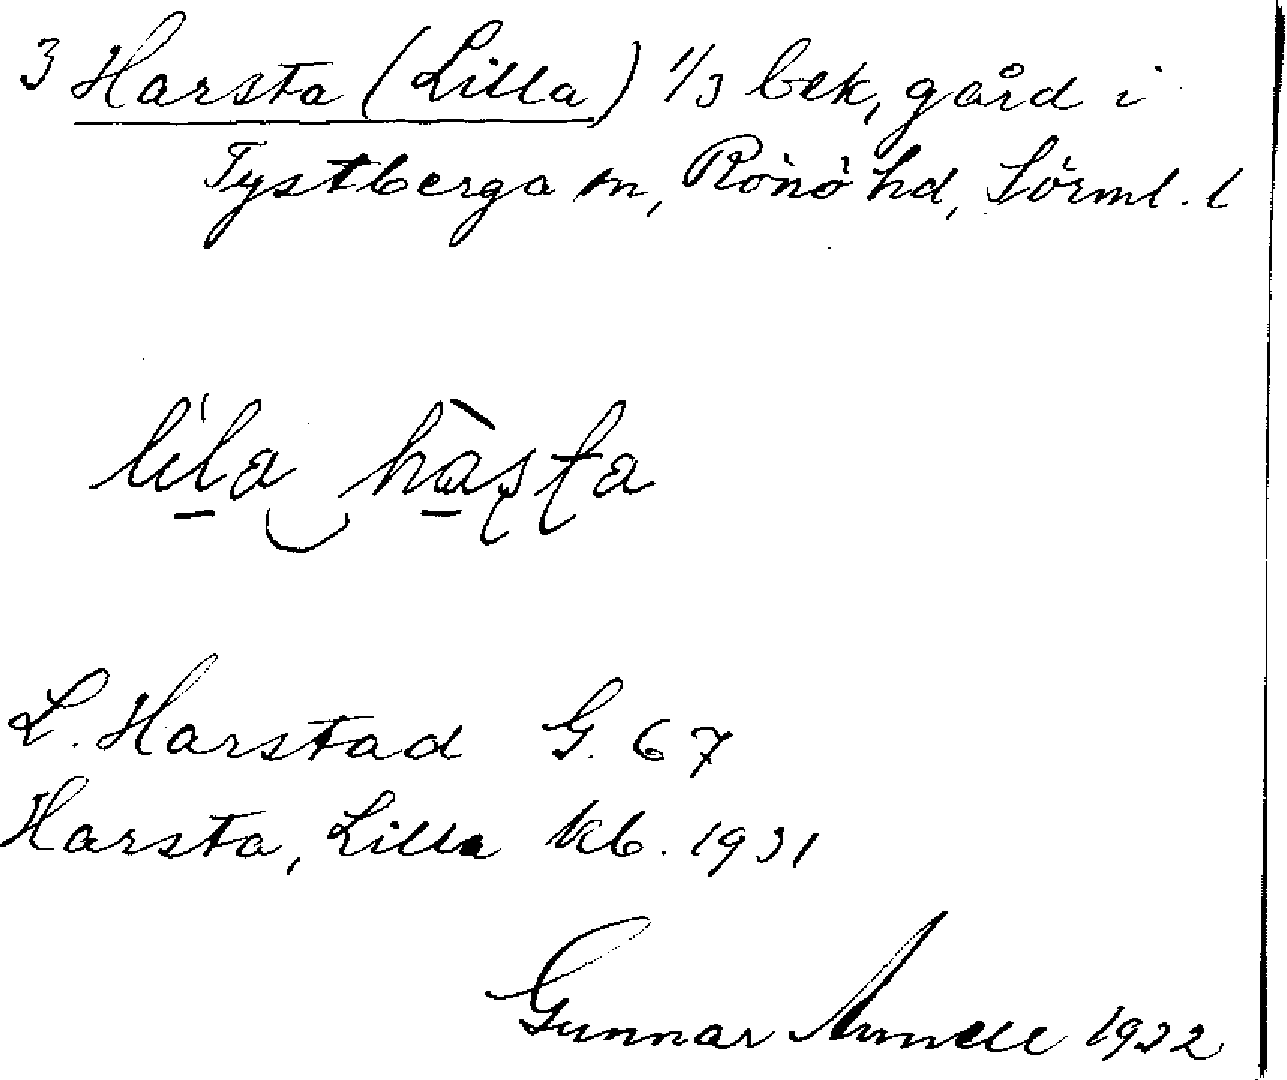 3 Harsta (Lilla) 1/3 bek, gård i
Tystberga sn, Rönö hd, Sörml. l
lila hàʂʈa
L. Harstad G. 67
Harsta, Lilla kb. 1931
Gunnar 1932